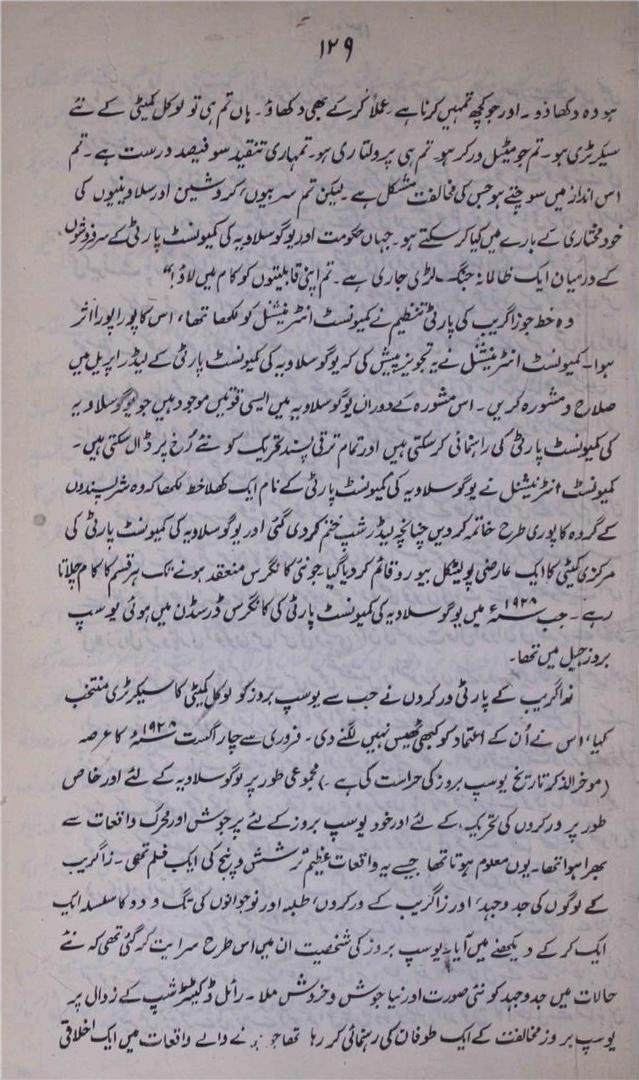 ۱۲۹
ہو وہ دکھا دو۔ اور جو کچھ تمہیں کرنا ہے عملاً کر کے بھی دکھاؤ۔ ہاں تم ہی تو لوکل کمیٹی کے نئے
سیکرٹری ہو۔ تم جو میٹل ورکر ہو۔ تم ہی پرولتاری ہو۔ تمہاری تنقید سو فیصد درست ہے۔ تم
اس انداز میں سوچتے ہو جس کی مخالفت مشکل ہے۔ لیکن تم سربیوں، کروشین اور سلاوینیوں کی
خود مختاری کے بارے میں کیا کر سکتے ہو۔ جہاں حکومت اور یوگوسلاویہ کی کمیونسٹ پارٹی کے سرفروشوں
کے درمیان ایک ظالمانہ جنگ لڑی جاری ہے۔ تم اپنی قابلیتوں کو کام میں لاؤ!"
وہ خط جو زاگریب کی پارٹی تنظیم نے کمیونسٹ انٹرنیشنل کو لکھا تھا، اس کا پورا پورا اثر
ہوا۔ کمیونسٹ انٹرنیشنل نے یہ تجویز پیش کی کہ یوگوسلاویہ کی کمیونسٹ پارٹی کے لیڈر اپریل میں
صلاح و مشورہ کریں۔ اس مشورہ کے دوران یوگوسلاویہ میں ایسی قوتیں موجود ہیں جو یوگوسلاویہ
کی کمیونسٹ پارٹی کی راہنمائی کر سکتی ہیں اور تمام ترقی پسند تحریک کو نئے رُخ پر ڈال سکتی ہیں۔
کمیونسٹ انٹرنیشنل نے یوگوسلاویہ کی کمیونسٹ پارٹی کے نام ایک کھلا خط لکھا کہ وہ شرپسندوں
کے گروہ کا پوری طرح خاتمہ کر دیں چنانچہ لیڈر شپ ختم کر دی گئی اور یوگوسلاویہ کی کمیونسٹ پارٹی کی
مرکزی کمیٹی کا ایک عارضی پولیٹیکل بیورو قائم کر دیا گیا۔ جو نئی کانگرس منعقد ہونے تک ہر قسم کا کام چلاتا
رہے۔ جب ۱۹۲۸ء میں یوگوسلاویہ کی کمیونسٹ پارٹی کی کانگرس ڈرسڈن میں ہوئی یوسپ
بروز جیل میں تھا۔
زاگریب کے پارٹی ورکروں نے جب سے یوسپ بروز کو لوکل کمیٹی کا سیکرٹری منتخب
کیا، اس نے اُن کے اعتماد کو کبھی ٹھیس نہیں لگنے دی۔ فروری سے چار اگست ۱۹۲۸ء کا عرصہ
(موخر الذکر تاریخ یوسپ بروز کی حراست کی ہے۔) مجموعی طور پر یوگوسلاویہ کے لئے اور خاص
طور پر ورکروں کی تحریک کے لئے اور خود یوسپ بروز کے لئے پرجوش اور محرک واقعات سے
بھرا ہوا تھا۔ یوں معلوم ہوتا تھا جیسے یہ واقعات عظیم شش و پنج کی ایک فلم تھی۔ زاگریب
کے لوگوں کی جدوجہد، اور زاگریب کے ورکروں، طلبہ اور نوجوانوں کی تگ و دو کا سلسلہ ایک
ایک کر کے دیکھنے میں آیا۔ یوسپ بروز کی شخصیت ان میں اس طرح سرایت کر گئی تھی کہ نئے
حالات میں جدوجہد کو نئی صورت اور نیا جوش و خروش ملا۔ رائل ڈکٹیٹر شپ کے زوال پر
یوسپ بروز مخالفت کے ایک طوفان کی رہنمائی کر رہا تھا جو نے والے واقعات میں ایک اخلاقی